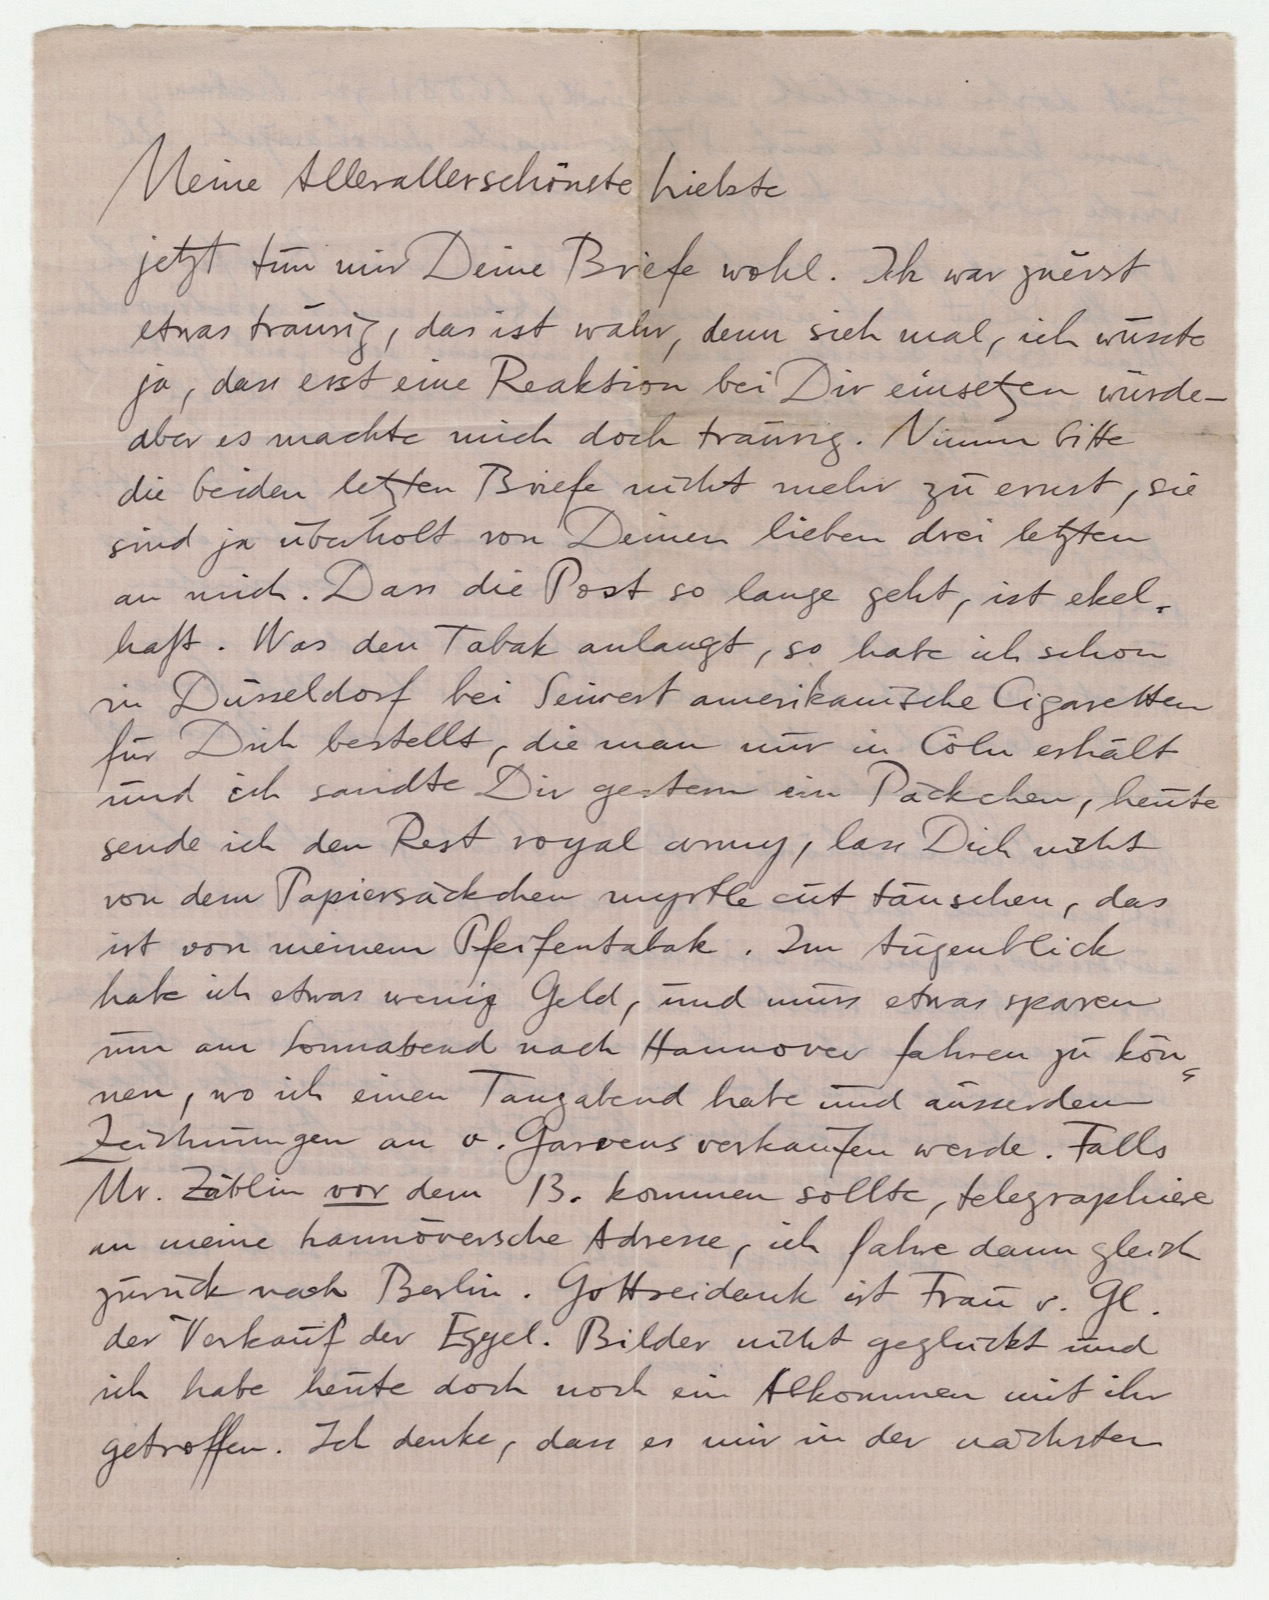 Meine Allerallerschönste Liebste
jetzt tun mir Deine Briefe wohl. Ich war zuerst
etwas traurig, das ist wahr, denn sieh mal, ich wusste
ja, dass erst eine Reaktion bei Dir einsetzen würde –
aber es machte mich doch traurig. Nimm bitte
die beiden letzten Briefe nicht mehr zu ernst, sie
sind ja überholt von Deinen lieben drei letzten
an mich. Dass die Post so lange geht, ist ekel-
haft. Was den Tabak anlangt, so habe ich schon
in Düsseldorf bei Seiwert amerikanische Cigaretten
für Dich bestellt, die man nur in Cöln erhält
und ich sandte Dir gestern ein Päckchen, heute
sende ich den Rest royal army, lass Dich nicht
von dem Papiersäckchen myrtle cut täuschen, das
ist von meinem Pfeifentabak. Im Augenblick
habe ich etwas wenig Geld, und muss etwas sparen
um am Sonnabend nach Hannover fahren zu kön-
nen, wo ich einen Tanzabend habe und ausserdem
Zeichnungen an v. Garvens verkaufen werde. Falls
Mr. Zäblin vor dem 13. kommen sollte, telegraphiere
an meine hannöversche Adresse, ich fahre dann gleich
zurück nach Berlin. Gottseidank ist Frau v. Gl.
der Verkauf der Eggel. Bilder nicht geglückt und
ich habe heute doch noch ein Abkommen mit ihr
getroffen. Ich denke, dass es mir in der nächsten